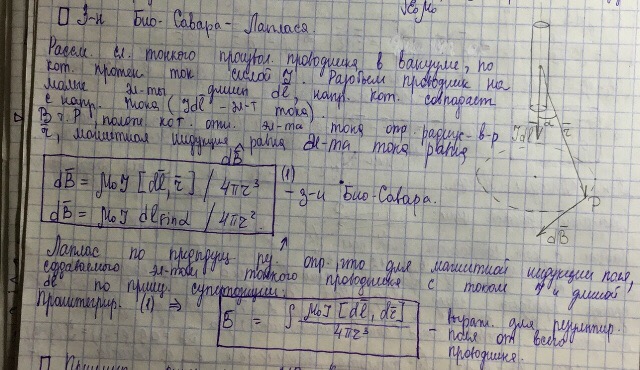 √ε₀μ₀
З-н Био-Савара-Лапласа.
Рассм. сл. тонкого произвол. проводника в вакууме, по
кот. протек. ток силой I. Разобьем проводник на
малые эл-ты длин dl, напр. кот. совпадает
с напр. тока (Idl - эл-т тока).
В т. P, полож. кот. отн. эл-та тока опр. радиус-в-р
r, магнитная индукция равна эл-та тока равна
dB
dB̄ = μ₀I [dl̄, r̄] / 4πr³ (1)
- з-н Био-Савара.
dB̄ = μ₀I dl sinα / 4πr².
Idl̄ α r̄
P
dB̄
Лаплас по предыдущ. опр., что для магнитной индукции поля,
создаваемого эл-том тонкого проводника с током I и длиной
dl по принц. суперпозиции:
Проинтегрир. (1) ⇒ B̄ = ∫ μ₀I [dl̄, dr̄] / 4πr³
- выраж. для результир.
поля от всего
проводника.